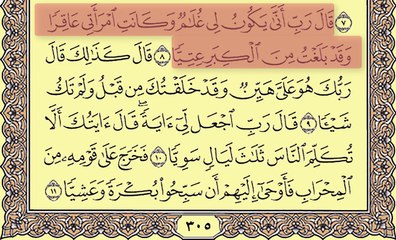 ٧ قَالَ رَبِّ أَنَّىٰ يَكُونُ لِى غُلَٰمٌ وَكَانَتِ ٱمْرَأَتِى عَاقِرًا
وَقَدْ بَلَغْتُ مِنَ ٱلْكِبَرِ عِتِيًّا ٨ قَالَ كَذَٰلِكَ قَالَ
رَبُّكَ هُوَ عَلَىَّ هَيِّنٌ وَقَدْ خَلَقْتُكَ مِن قَبْلُ وَلَمْ تَكُ
شَيْـًٔا ٩ قَالَ رَبِّ ٱجْعَل لِّىٓ ءَايَةً ۚ قَالَ ءَايَتُكَ أَلَّا
تُكَلِّمَ ٱلنَّاسَ ثَلَٰثَ لَيَالٍ سَوِيًّا ١٠ فَخَرَجَ عَلَىٰ قَوْمِهِۦ مِنَ
ٱلْمِحْرَابِ فَأَوْحَىٰٓ إِلَيْهِمْ أَن سَبِّحُوا۟ بُكْرَةً وَعَشِيًّا ١١
٣٠٥